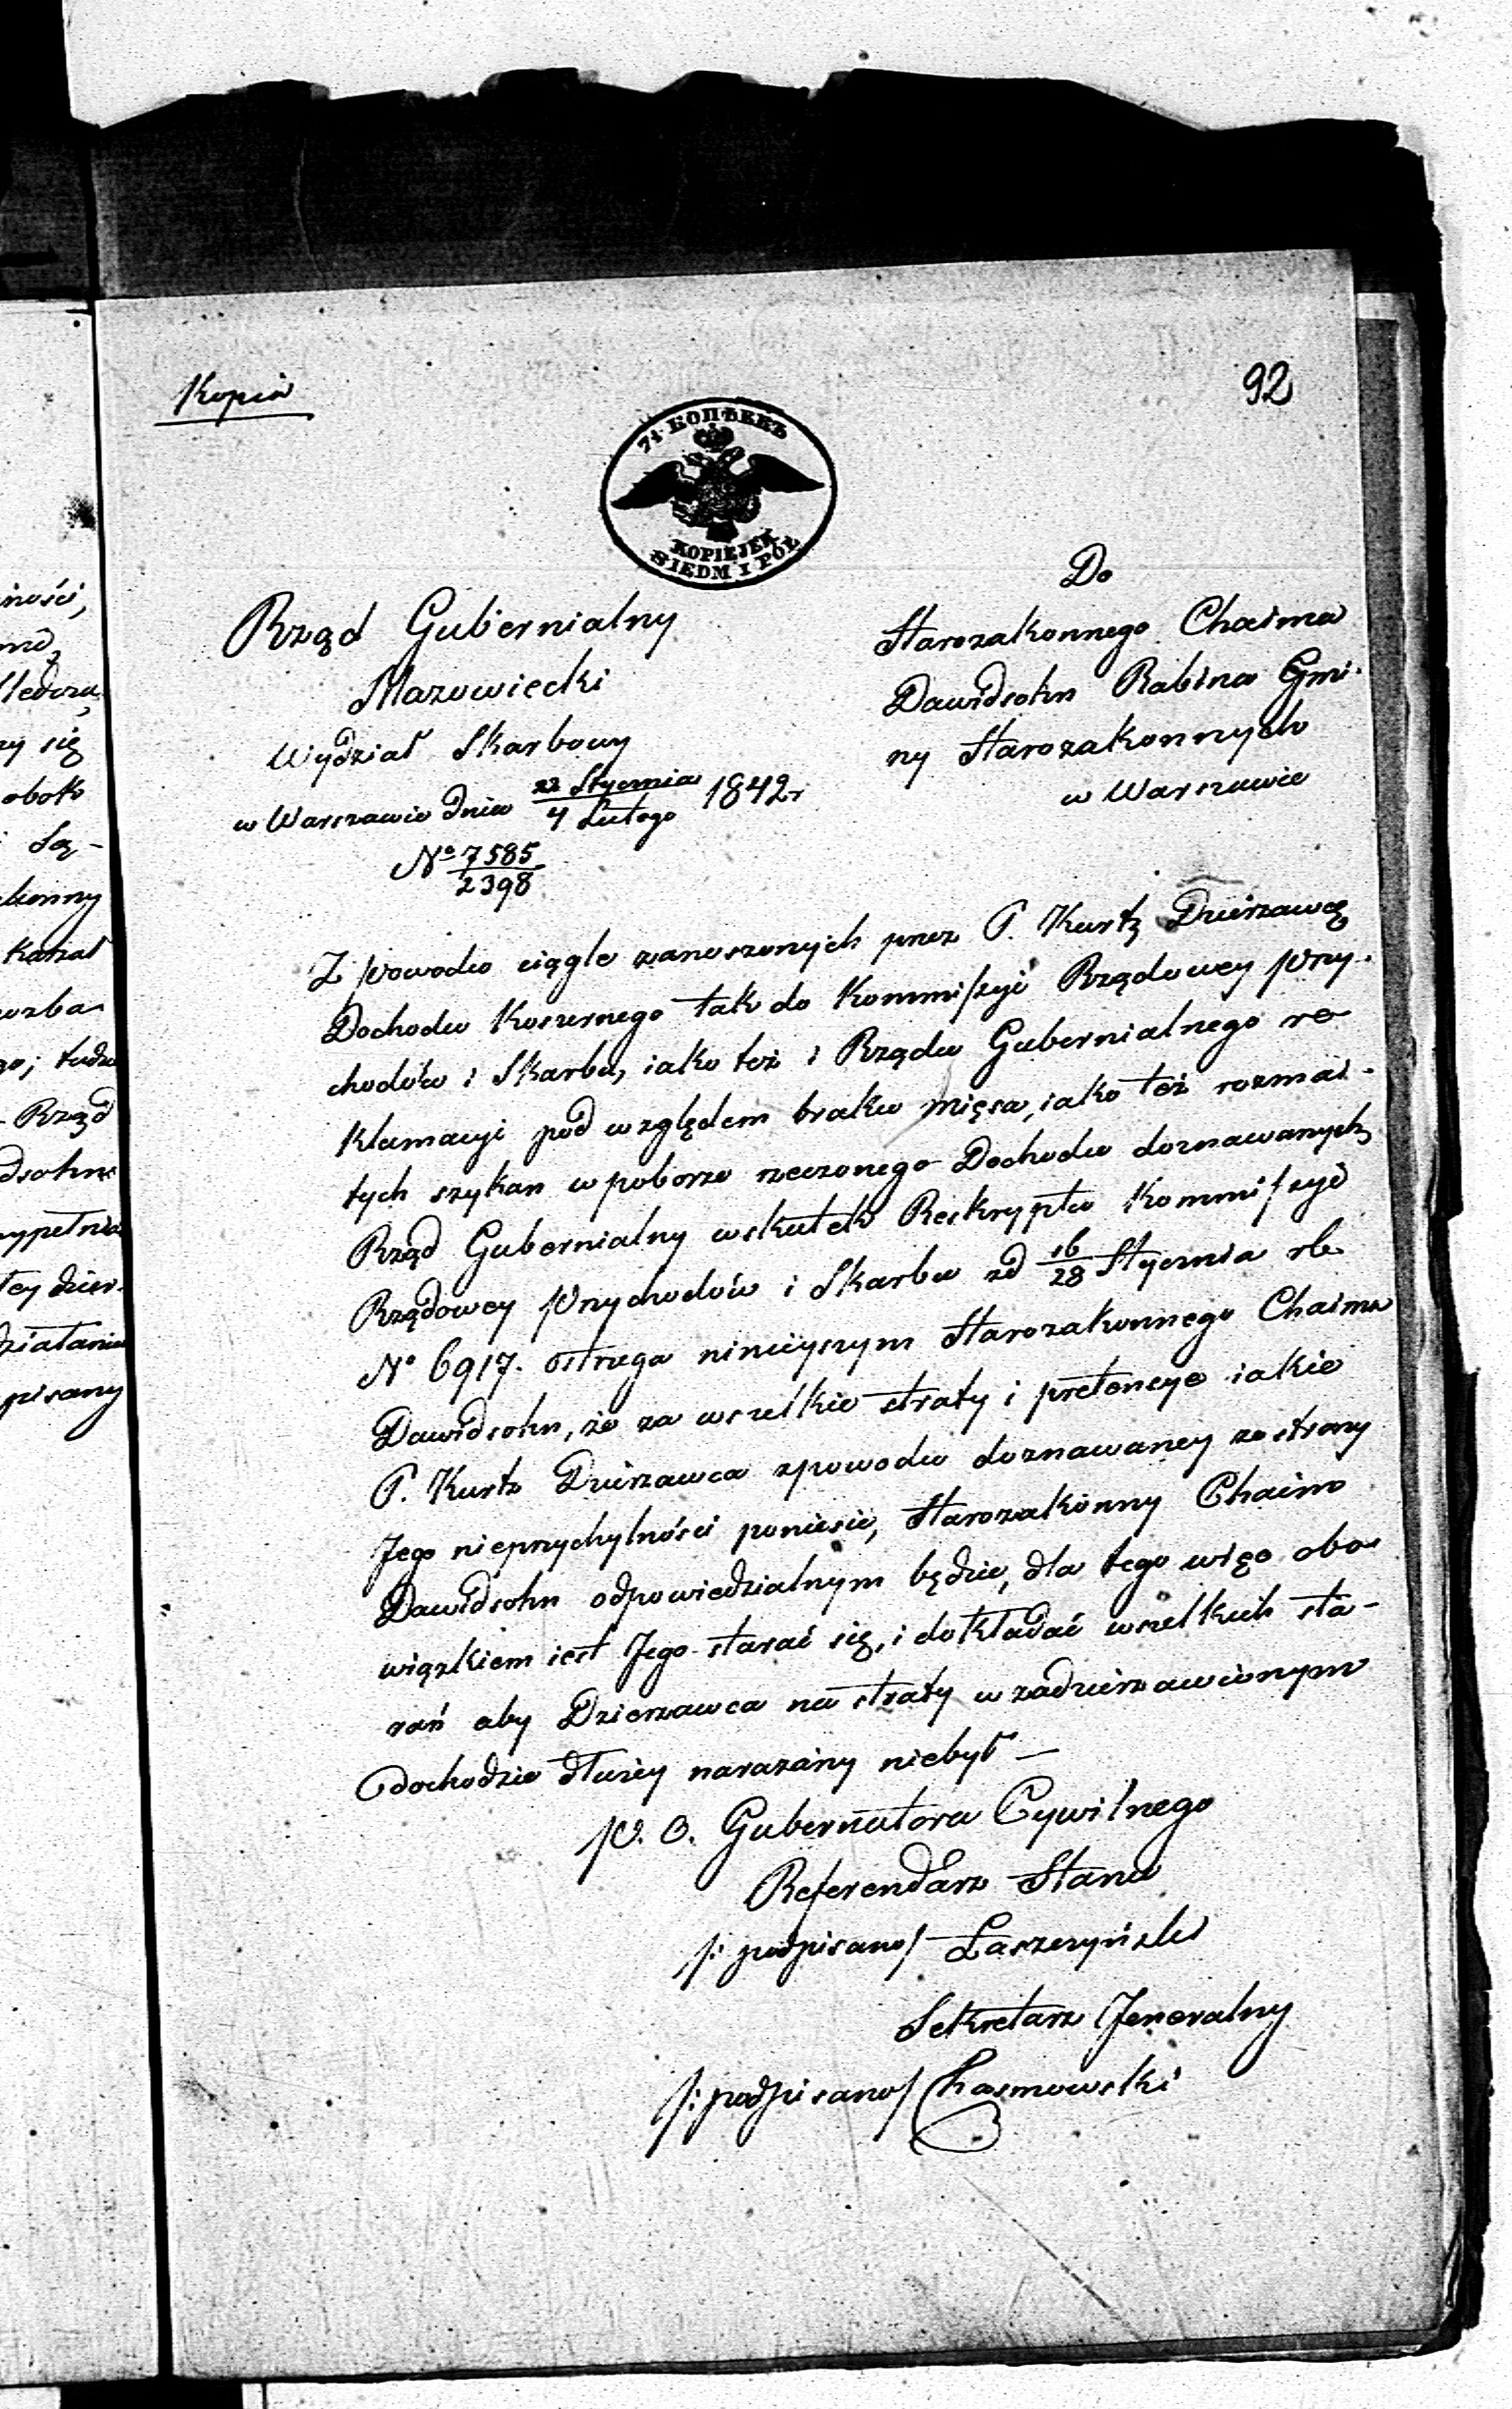 ności,
się
obok
Są-
Kazał
Rząd
dsohn
pisany
Kopia
92
7½ КОПѢЕКЪ
KOPIEJEK
SIEDM I PÓŁ
Rząd Gubernialny
Mazowiecki
Wydział Skarbowy
w Warszawie dnia 22 Stycznia / 4 Lutego 1842 r
No 7585 / 2398
Do
Starozakonnego Chaima
Dawidsohn Rabina Gmi-
ny Starozakonnych
w Warszawie
Z powodu ciągle zanoszonych przez P. Kurtz Dzierżawcę
Dochodu Koszernego tak do Kommissyi Rządowey Przy-
chodów i Skarbu, iako też i Rządu Gubernialnego re-
klamacyi pod względem braku mięsa, iako też rozmai-
tych szykan w poborze rzeczonego Dochodu doznawanych,
Rząd Gubernialny wskutek Reskryptu Kommissyi
Rządowey Przychodów i Skarbu zd 16/28 Stycznia rb
No 6917. ostrzega ninieyszym Starozakonnego Chaima
Dawidsohn, że za wszelkie straty i pretensye iakie
P. Kurtz Dzierżawca zpowodu doznawaney ze strony
Jego nieprzychylności poniesie, Starozakonny Chaim
Dawidsohn odpowiedzialnym będzie, dla tego więc obo-
wiązkiem iest Jego starać się, i dokładać wszelkich sta-
rań aby Dzierżawca na straty w zadzierżawionym
dochodzie dłużey narażany niebył —
p. o. Gubernatora Cywilnego
Referendarz Stanu
/: podpisano / Łaszczyński
Sekretarz Jeneralny
/: podpisano / Chasmowski